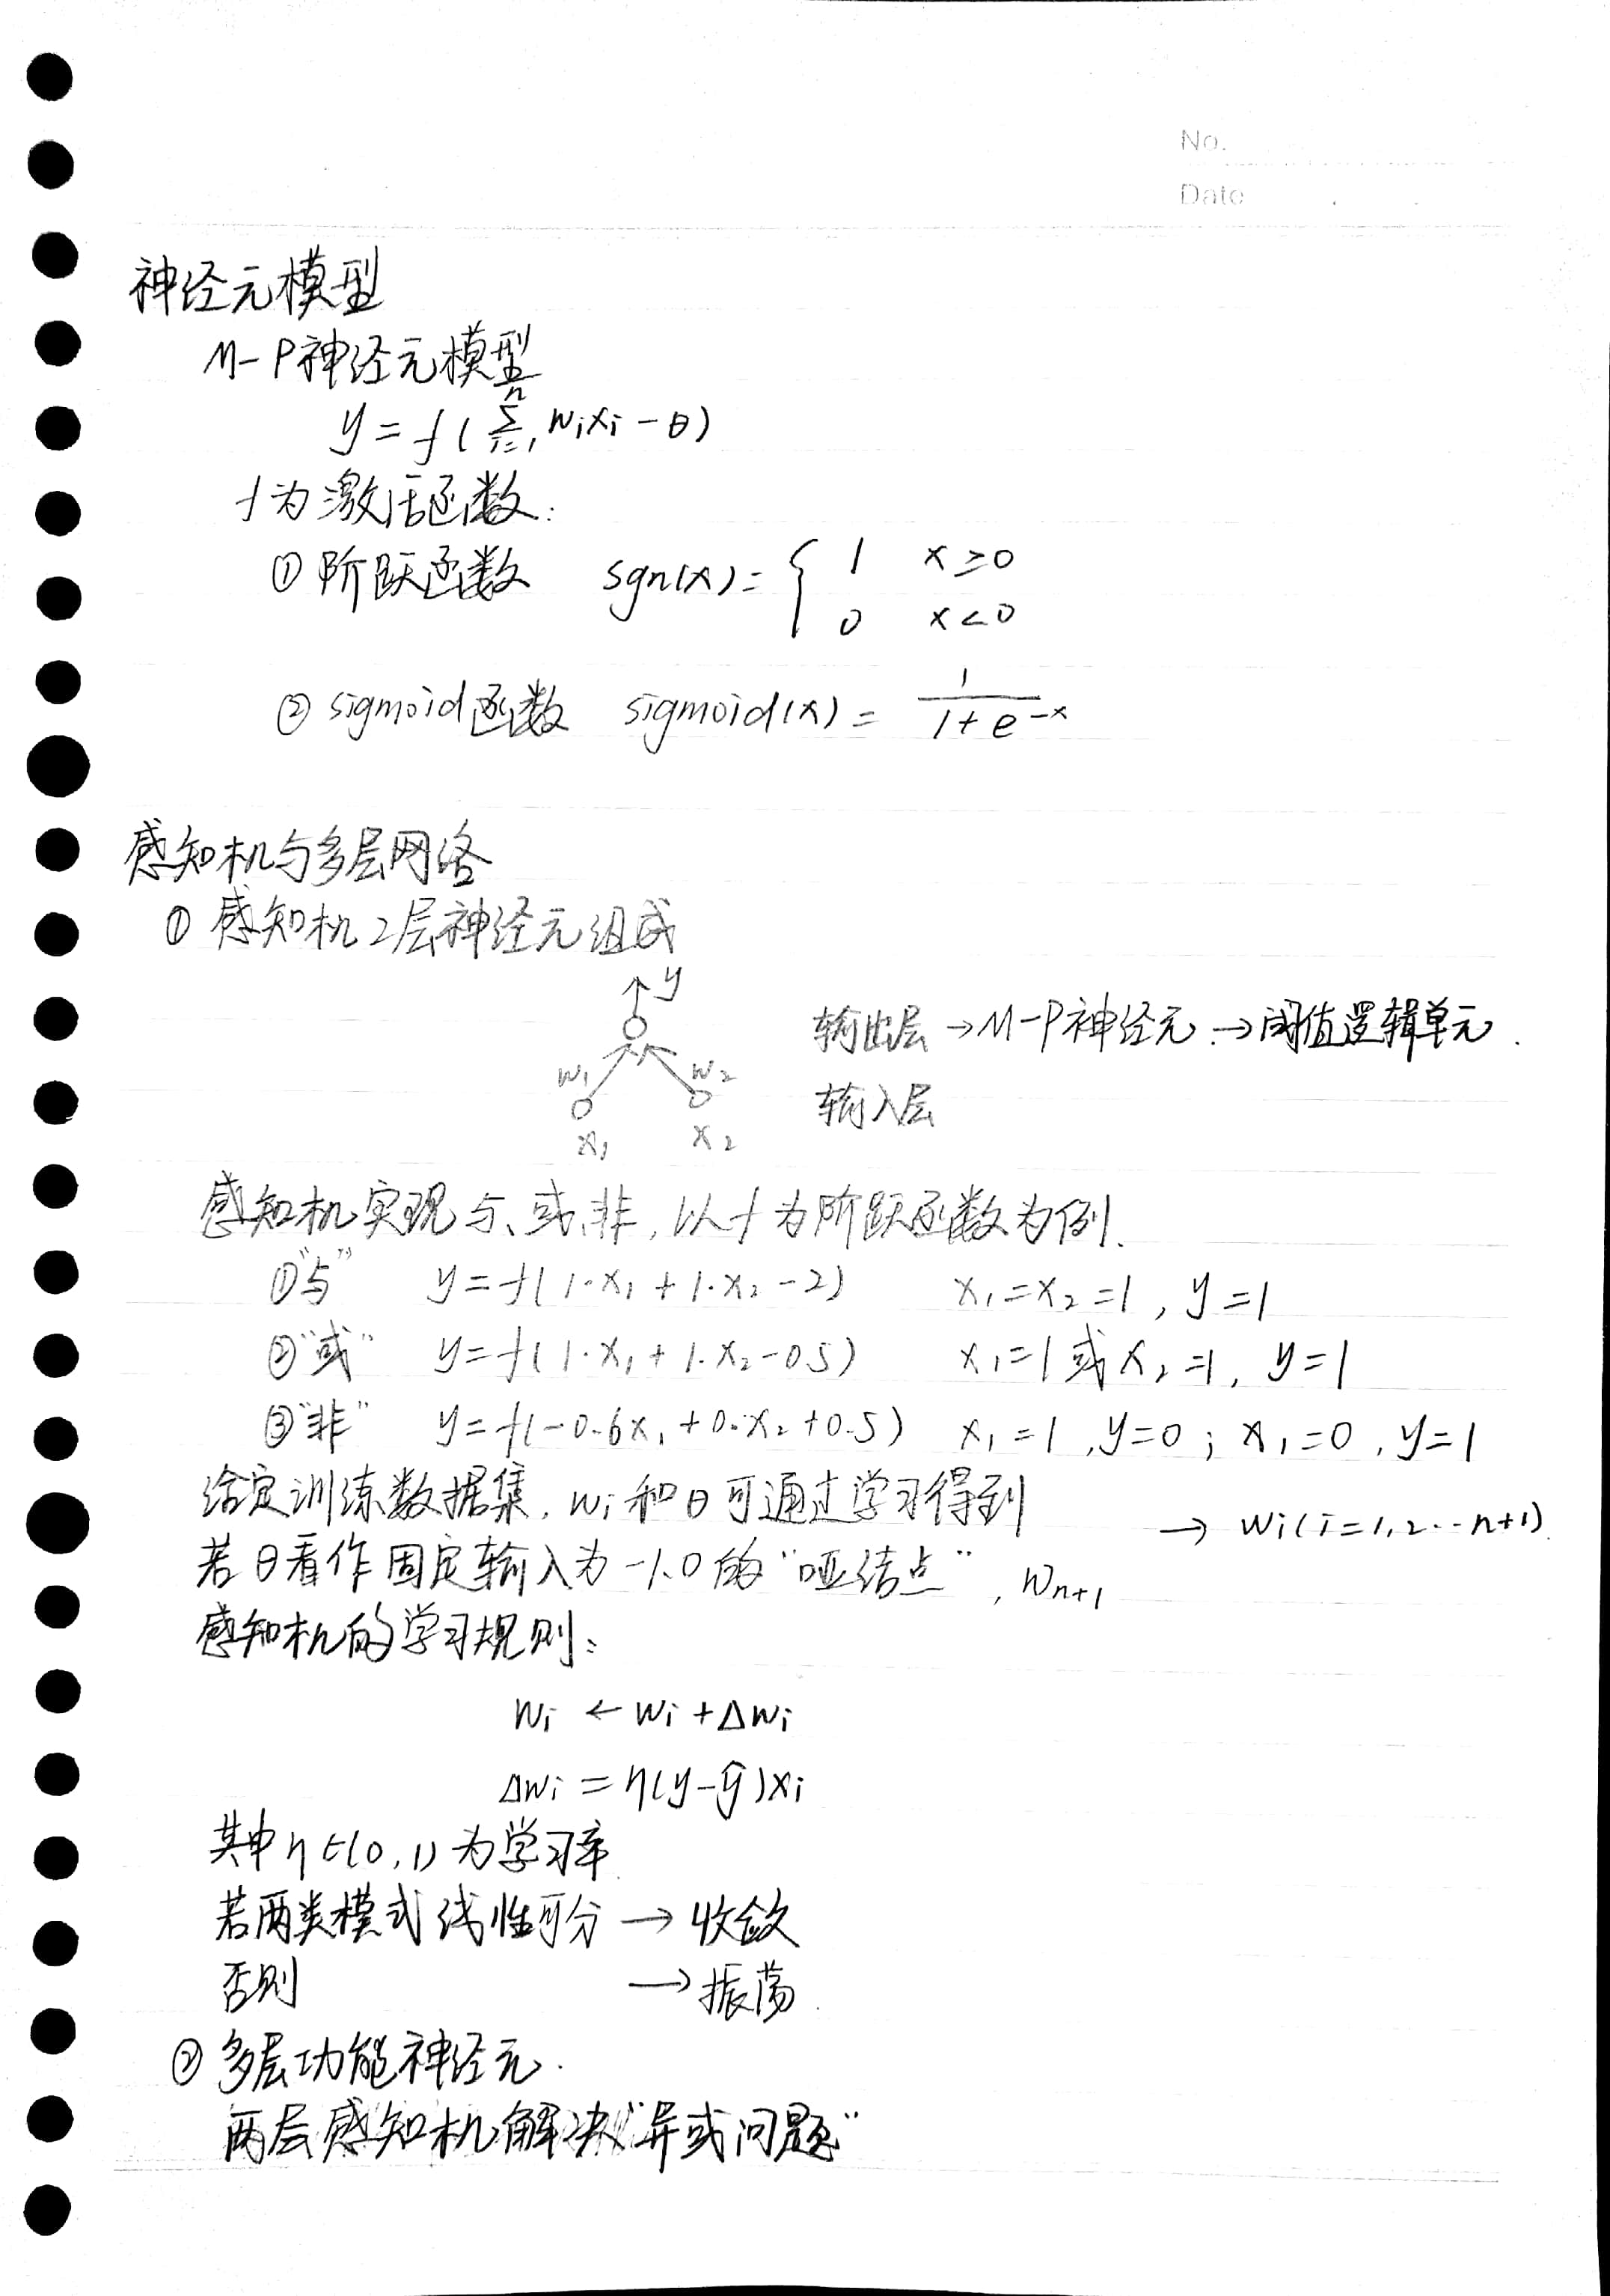 No.
Date
神经元模型
M-P神经元模型
y = f(∑ⁿᵢ₌₁ wᵢxᵢ - θ)
f为激活函数:
① 阶跃函数 sgn(x) = { 1 x ≥ 0
0 x < 0
② sigmoid函数 sigmoid(x) = 1/(1+e^-x)
感知机与多层网络
① 感知机2层神经元组成
y
输出层 → M-P神经元 → 阈值逻辑单元.
w₁ w₂
输入层
x₁ x₂
感知机实现与、或、非, 以f为阶跃函数为例.
①"与" y = f(1·x₁ + 1·x₂ - 2) x₁ = x₂ = 1, y = 1
②"或" y = f(1·x₁ + 1·x₂ - 0.5) x₁ = 1 或 x₂ = 1, y = 1
③"非" y = f(-0.6x₁ + 0·x₂ + 0.5) x₁ = 1, y = 0; x₁ = 0, y = 1
给定训练数据集, wᵢ和θ可通过学习得到
若θ看作固定输入为-1.0的"哑结点", wₙ₊₁ → wᵢ(i=1,2…n+1).
感知机的学习规则:
wᵢ ← wᵢ + Δwᵢ
Δwᵢ = η(y - ŷ)xᵢ
其中η∈(0,1)为学习率
若两类模式线性可分 → 收敛
否则 → 振荡.
② 多层功能神经元.
两层感知机解决"异或问题"